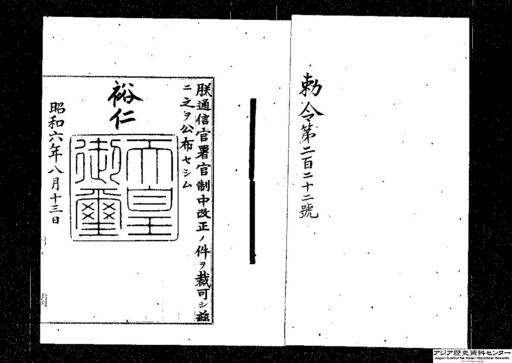 勅令第二百二十二號
朕通信官署官制中改正ノ件ヲ裁可シ茲
ニ之ヲ公布セシム
裕仁
天皇
御璽
昭和六年八月十三日
アジア歴史資料センター
Japan Center for Asian Historical Records